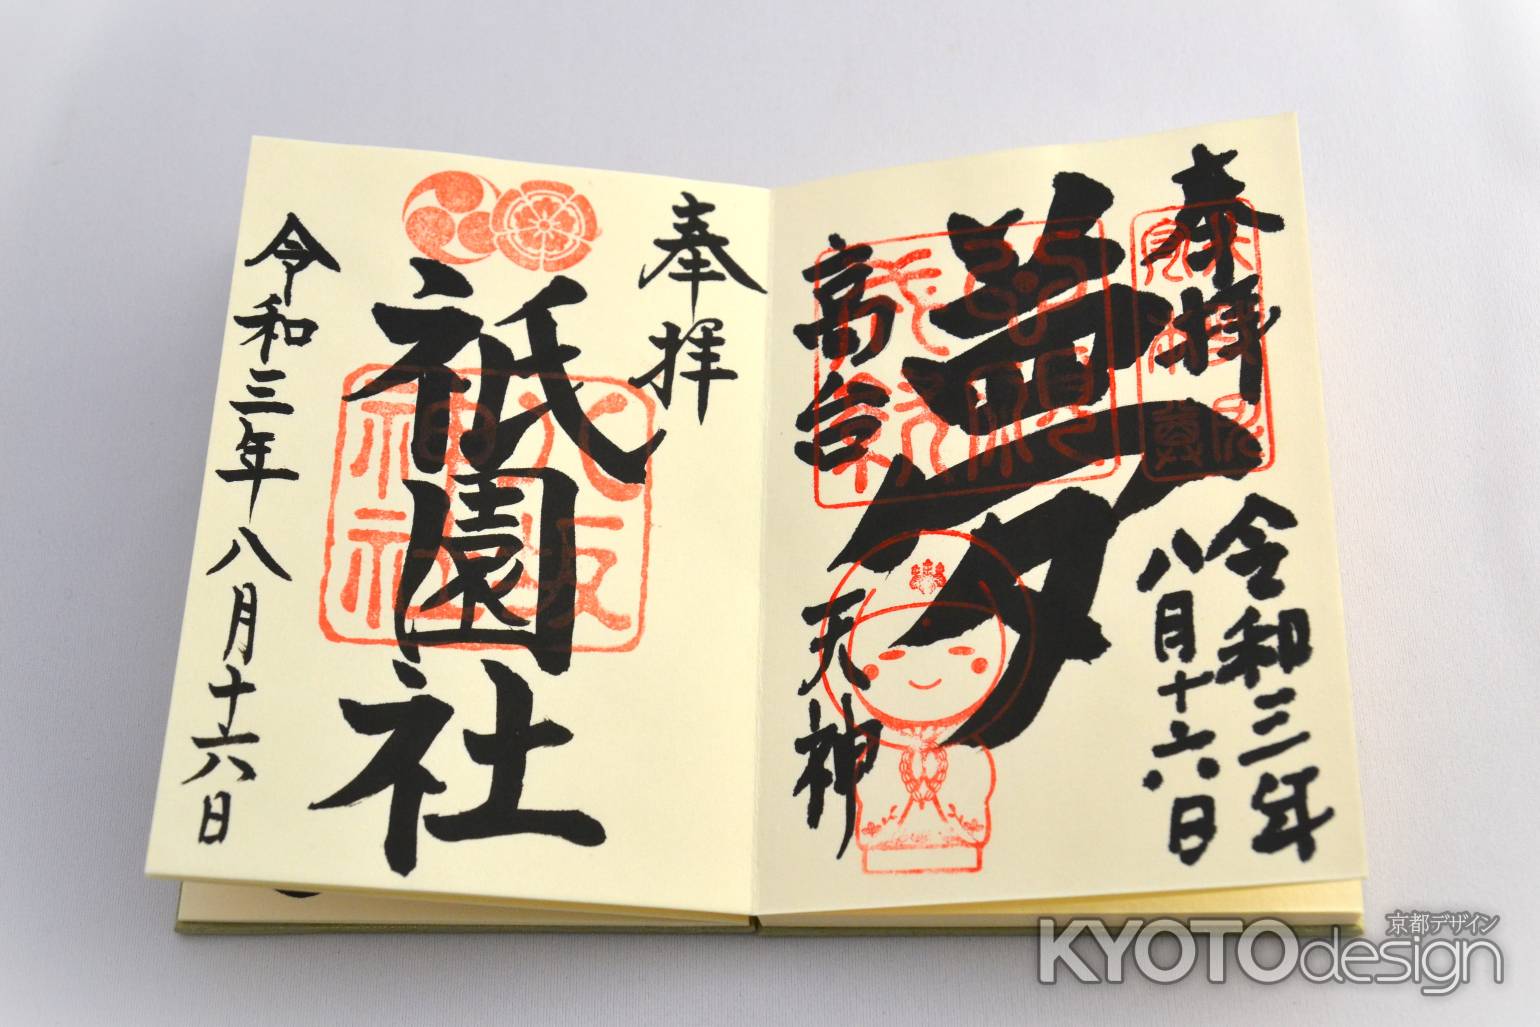 奉拝
夢
高台
天神
令和三年
八月十六日
奉拝
祇園社
八坂神社
令和三年八月十六日
京都デザイン
KYOTOdesign